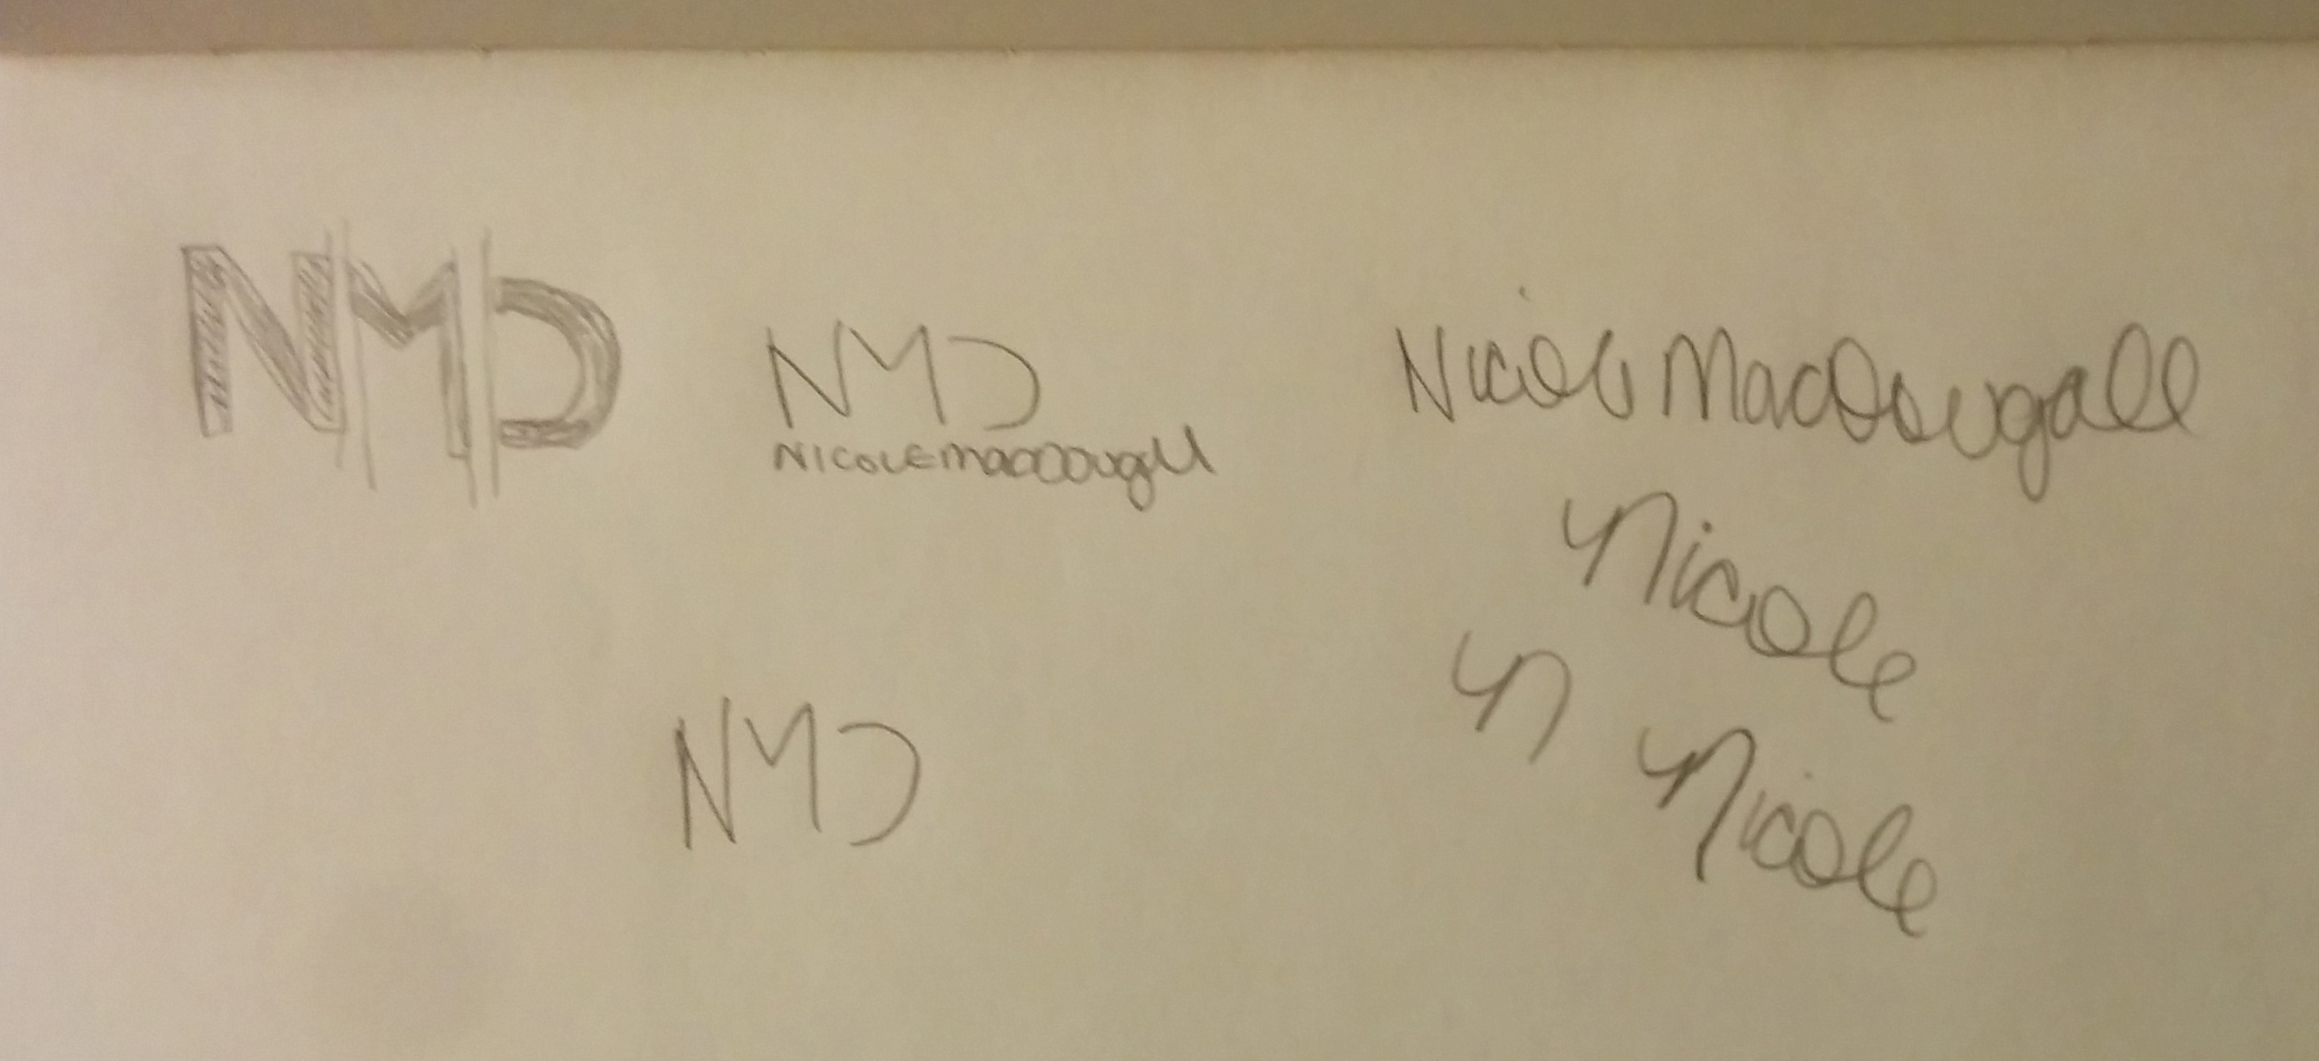 NMD
NMD
NICOLEMACDOUGll
Nicole MacDougall
Nicole
n
NMD
Nicole